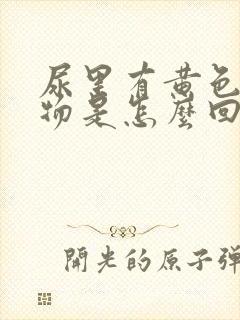 尿里有黄色
物是怎麼回
開光的原子彈